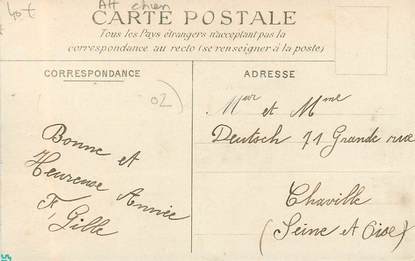 40f
Att chien
CARTE POSTALE
Tous les Pays étrangers n'acceptant pas la
correspondance au recto (se renseigner à la poste)
CORRESPONDANCE
ADRESSE
02
Bonne et
Heureuse Année
F. Gille
Meur et Mme
Deutsch 71 Grande rue
Chaville
(Seine et Oise)